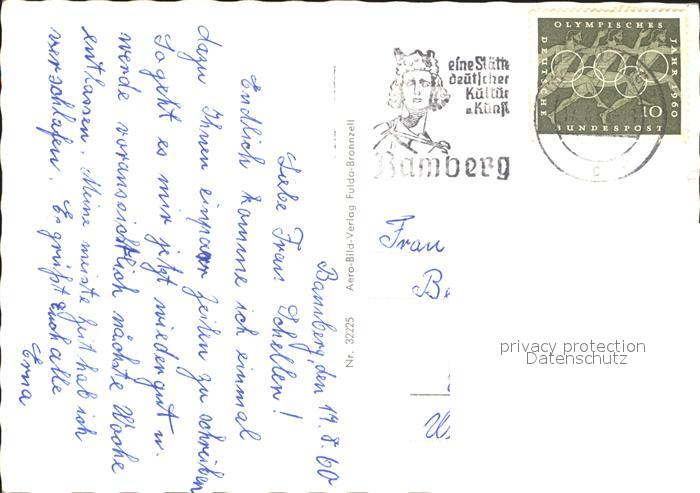 Bamberg, den 17.8.60
Liebe Frau Schellen!
Endlich komme ich einmal
dazu Ihnen ein paar Zeilen zu schreiben
So geht es mir jetzt wieder gut u.
werde voraussichtlich nächste Woche
entlassen. Meine meiste Zeit hab ich
verschlafen. Es grüßt Euch alle
Erna
Nr. 32225 Aero-Bild-Verlag Fulda-Bronnzell
eine Stätte
deutscher
Kultur
u. Kunst
Bamberg
OLYMPISCHES
JAHR 1960
DEUTSCHE
BUNDESPOST
10
c
Frau
privacy protection
Datenschutz